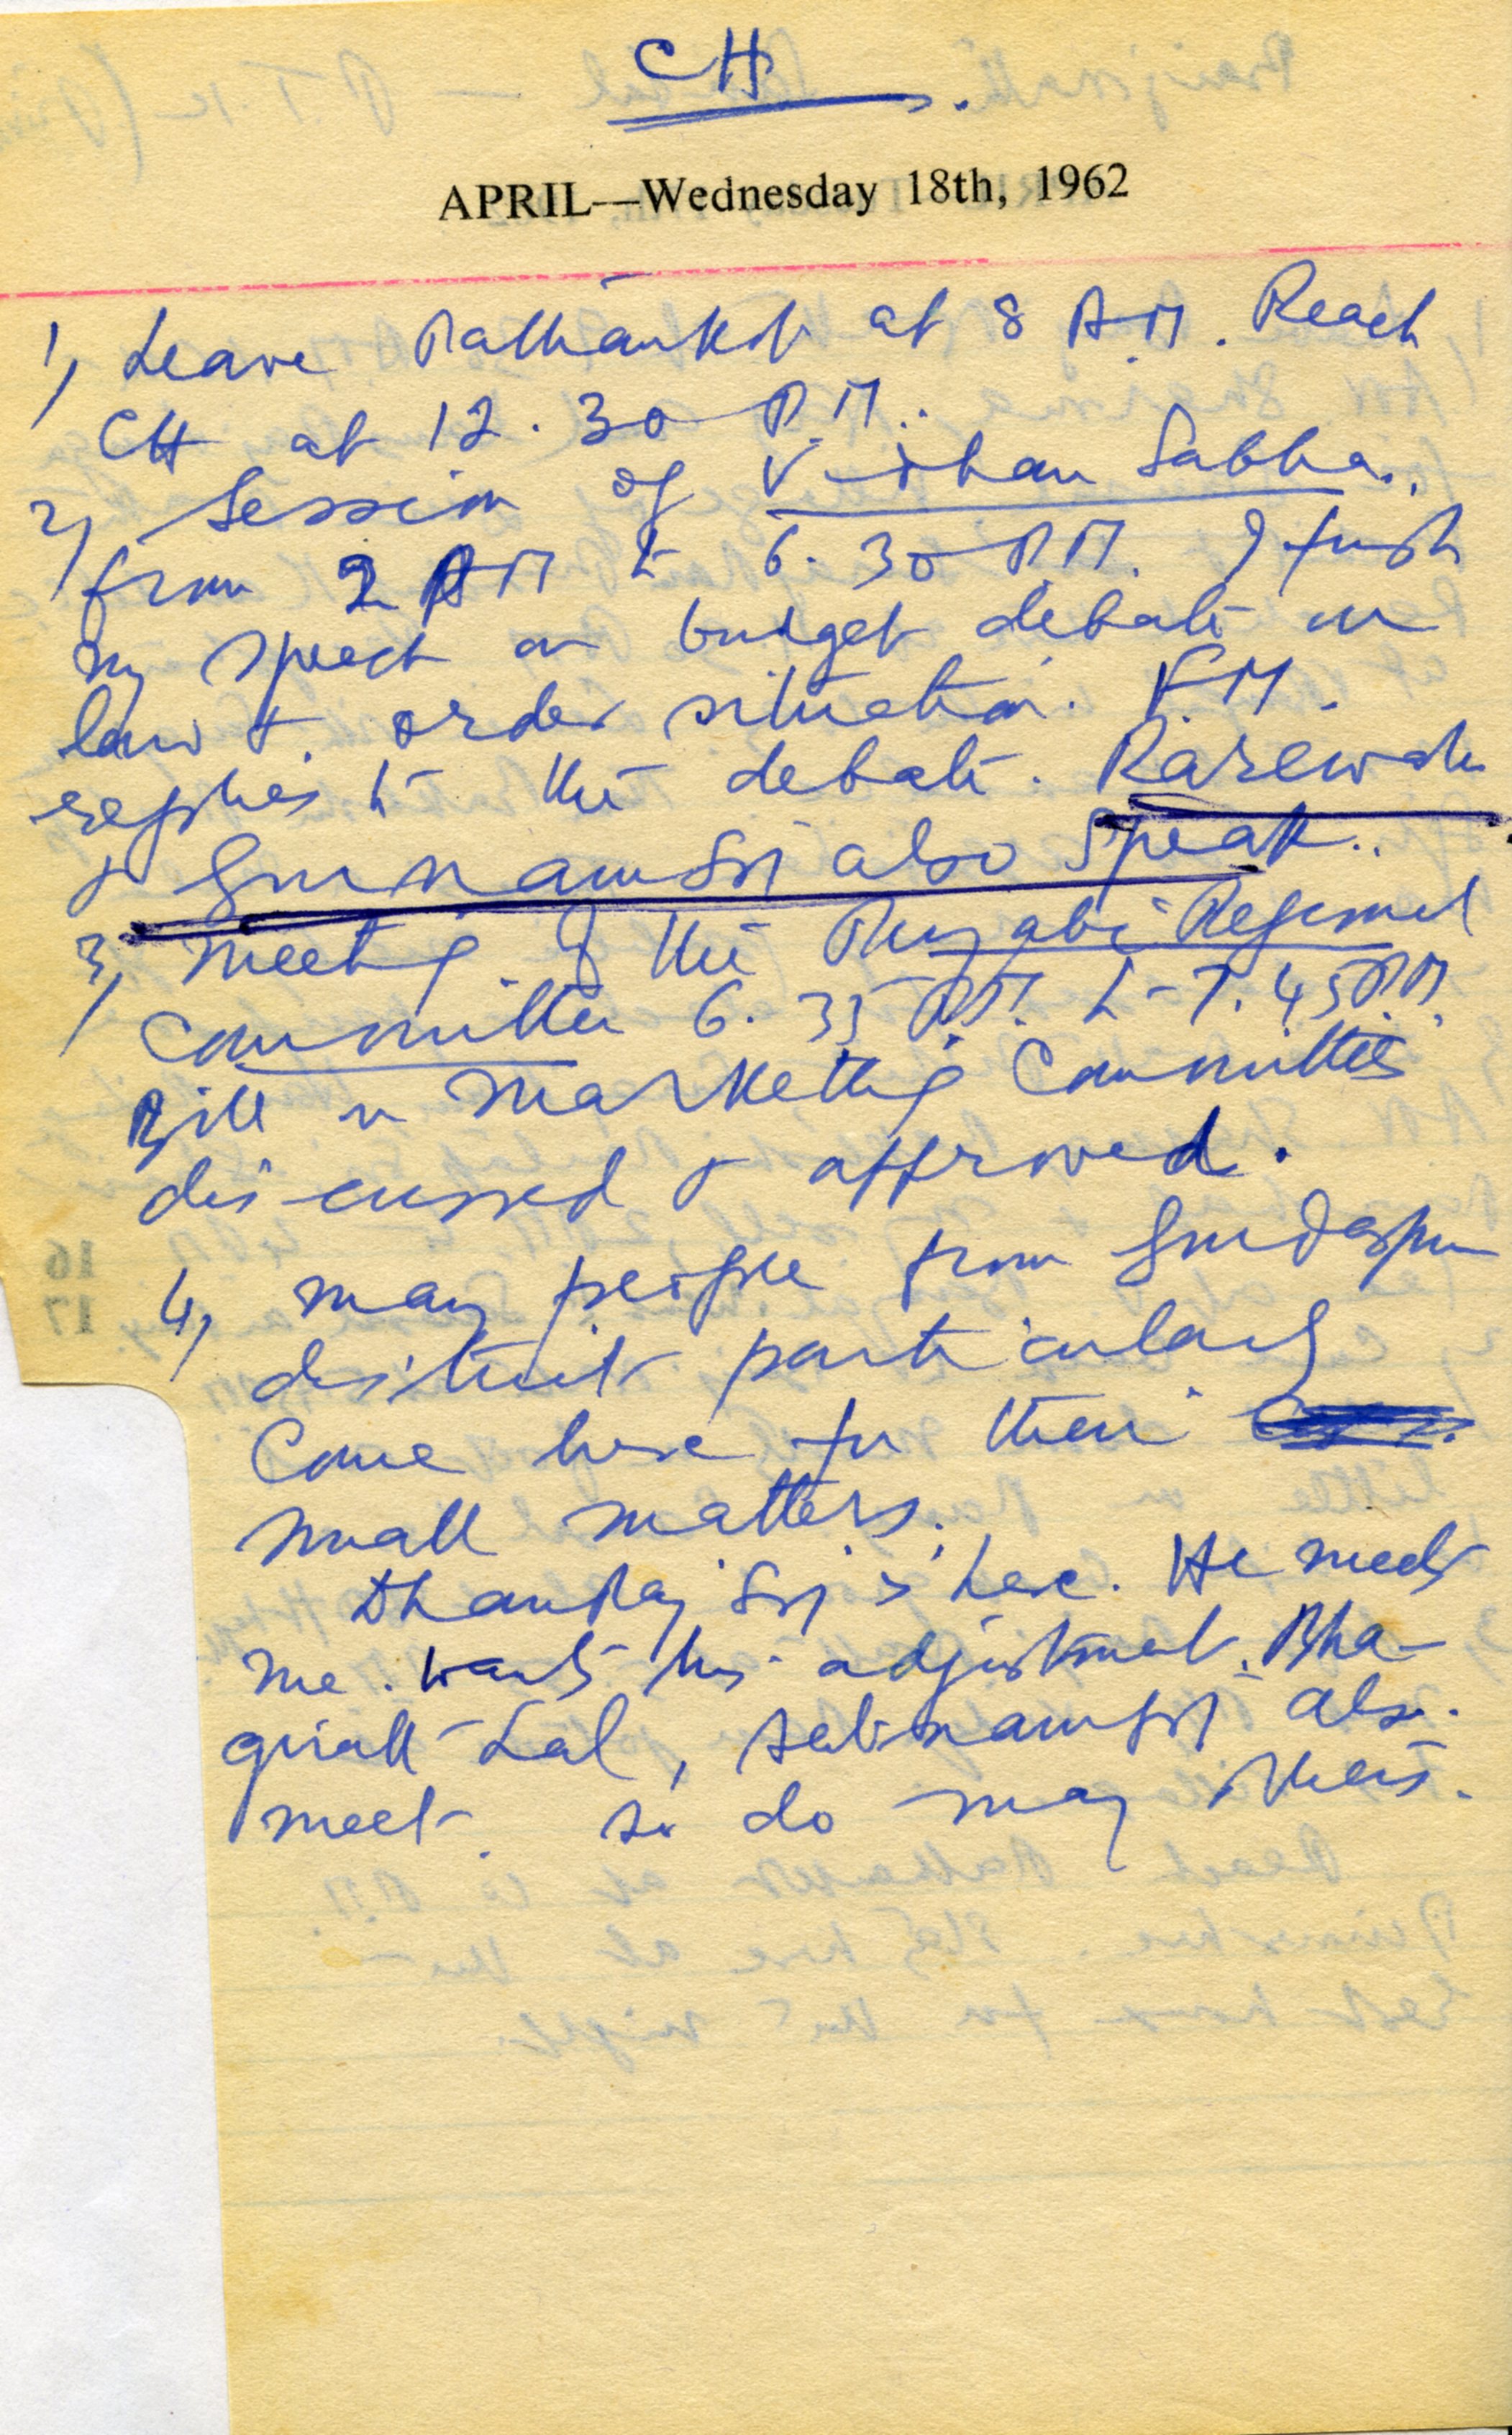 CH.
APRIL—Wednesday 18th, 1962
1) Leave Pathankot at 8 A.M. Reach
CH at 12.30 P.M.
2) Session of Vidhan Sabha.
from 2 PM to 6.30 P.M. I finish
my speech on budget debate on
law & order situation. F.M.
replies to the debate. Rarewala
& Gurnam Sgh also speak.
3) Meeting of the Punjabi Regional
Committee 6.35 P.M. to 7.45 P.M.
Bill on Marketing Committees
discussed & approved.
4) Many people from Gurdaspur
district particularly
come here for their
small matters.
Dhanraj Sgh is here. He meets
me. wants his adjustment. Bha-
girath Lal, Satnam Sgh also
meet. So do many others.
16
17